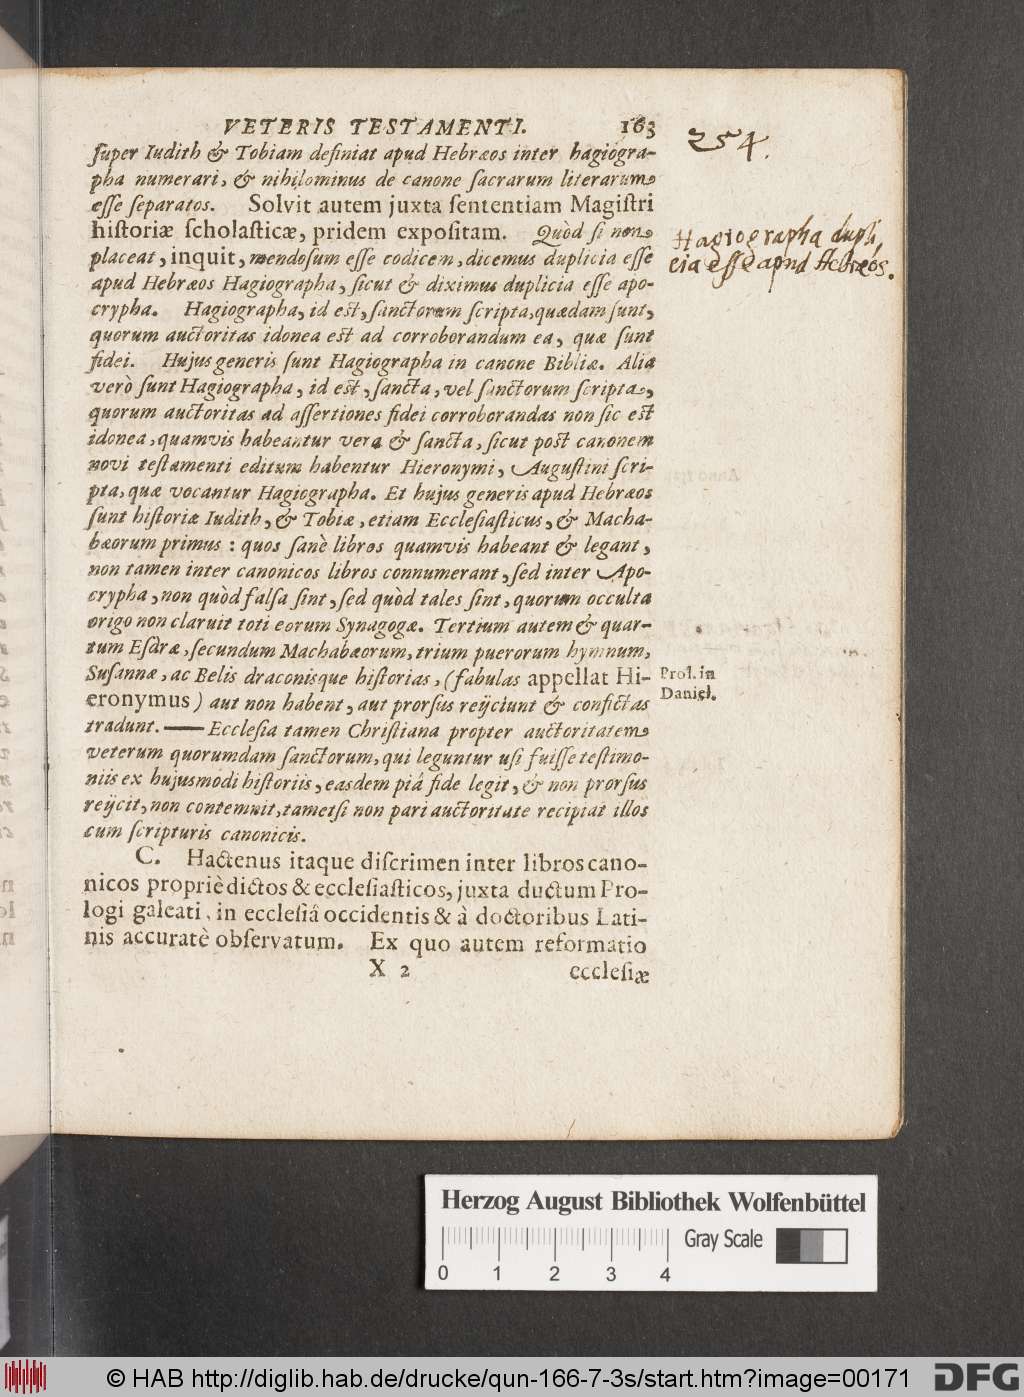 VETERIS TESTAMENTI. 163
254.
ſuper Iudith & Tobiam definiat apud Hebræos inter hagiogra-
pha numerari, & nihilominus de canone ſacrarum literarum
eſſe ſeparatos. Solvit autem juxta ſententiam Magiſtri
hiſtoriæ ſcholaſticæ, pridem expoſitam. Quòd ſi non
Hagiographa dupli,
placeat, inquit, mendoſum eſſe codicem, dicemus duplicia eſſe
cia esse apud Hebræos.
apud Hebræos Hagiographa, ſicut & diximus duplicia eſſe apo-
crypha. Hagiographa, id est, ſanctorum ſcripta, quædam ſunt,
quorum auctoritas idonea est ad corroborandum ea, quæ ſunt
fidei. Hujus generis ſunt Hagiographa in canone Bibliæ. Alia
verò ſunt Hagiographa, id est, ſancta, vel ſanctorum ſcripta,
quorum auctoritas ad aſſertiones fidei corroborandas non ſic est
idonea, quamvis habeantur vera & ſancta, ſicut post canonem
novi teſtamenti editum habentur Hieronymi, Auguſtini ſcri-
pta, quæ vocantur Hagiographa. Et hujus generis apud Hebræos
ſunt hiſtoriæ Iudith, & Tobiæ, etiam Eccleſiaſticus, & Macha-
bæorum primus : quos ſanè libros quamvis habeant & legant,
non tamen inter canonicos libros connumerant, ſed inter Apo-
crypha, non quòd falſa ſint, ſed quòd tales ſint, quorum occulta
origo non claruit toti eorum Synagogæ. Tertium autem & quar-
tum Eſdræ, ſecundum Machabæorum, trium puerorum hymnum,
Suſannæ, ac Belis draconisque hiſtorias, (fabulas appellat Hi-
Prol. in
eronymus) aut non habent, aut prorſus reijciunt & confictas
Daniel.
tradunt. — Eccleſia tamen Chriſtiana propter auctoritatem
veterum quorumdam ſanctorum, qui leguntur uſi fuiſſe teſtimo-
niis ex hujusmodi hiſtoriis, easdem piâ fide legit, & non prorſus
reijcit, non contemnit, tametſi non pari auctoritate recipiat illos
cum ſcripturis canonicis.
C. Hactenus itaque diſcrimen inter libros cano-
nicos propriè dictos & eccleſiaſticos, juxta ductum Pro-
logi galeati, in eccleſiâ occidentis & à doctoribus Lati-
nis accuratè obſervatum. Ex quo autem reformatio
X 2 eccleſiæ
Herzog August Bibliothek Wolfenbüttel
Gray Scale
0 1 2 3 4
© HAB http://diglib.hab.de/drucke/qun-166-7-3s/start.htm?image=00171
DFG